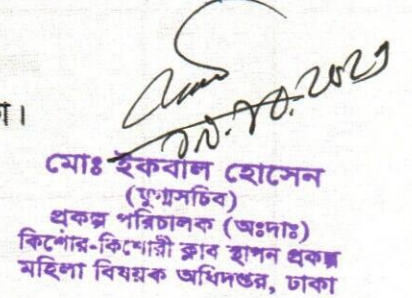 া।
মোঃ ইকবাল হোসেন
(যুগ্মসচিব)
প্রকল্প পরিচালক (অঃদাঃ)
কিশোর-কিশোরী ক্লাব স্থাপন প্রকল্প
মহিলা বিষয়ক অধিদপ্তর, ঢাকা